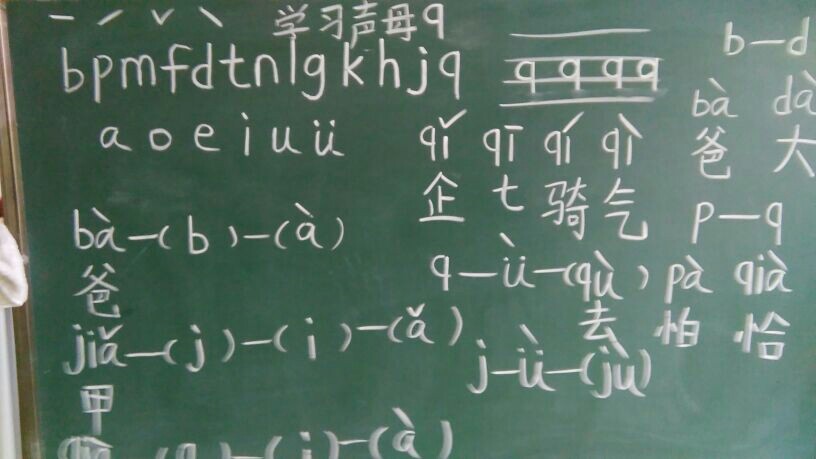 ˉ ˊ ˇ ˋ 学习声母q
b p m f d t n l g k h j q
q q q q
b—d
bà dà
爸 大
a o e i u ü
qǐ qī qí qì
企 七 骑 气
p—q
pà qià
怕 恰
bà—(b)—(à)
爸
q—ǜ—(qù)
去
jiǎ—(j)—(i)—(ǎ)
甲
j—ǜ—(jù)
qià—(q)—(i)—(à)